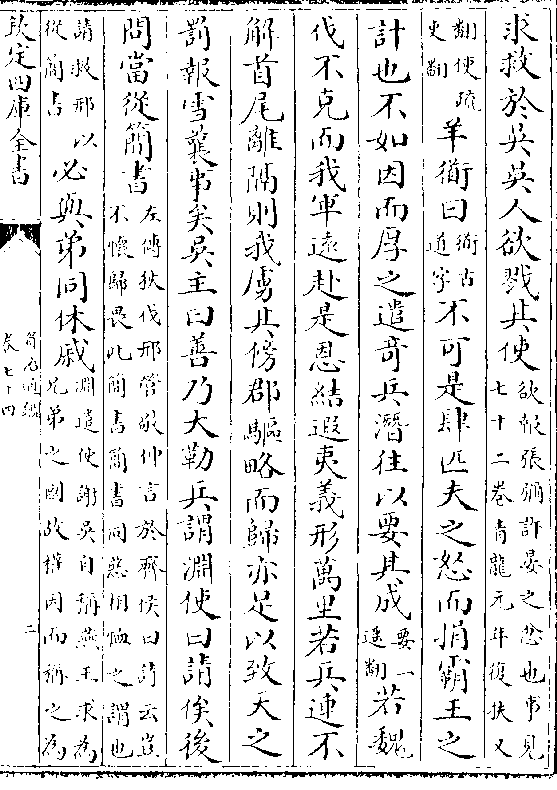 求救於吳吳人欲戮其使欲報張彌許晏之忿也事見七十二卷青龍元年復扶又
翻使疏吏翻羊衜曰衜古道字不可是肆匹夫之怒而捐霸王之
計也不如因而厚之遣奇兵潛往以要其成要一遥翻若魏
伐不克而我軍遠赴是恩結遐夷義形萬里若兵連不
解首尾離隔則我虜其傍郡驅略而歸亦足以致天之
罰報雪曩事矣吳主曰善乃大勒兵謂淵使曰請俟後
問當從簡書左傳狄伐邢管敬仲言於齊侯曰詩云豈不懷歸畏此簡書簡書同惡相恤之謂也
請救邢以從簡書必與弟同休戚淵遣使謝吳自稱燕王求為兄弟之國故權因而稱之為
欽定四庫全書
資治通鑑
卷七十四
二